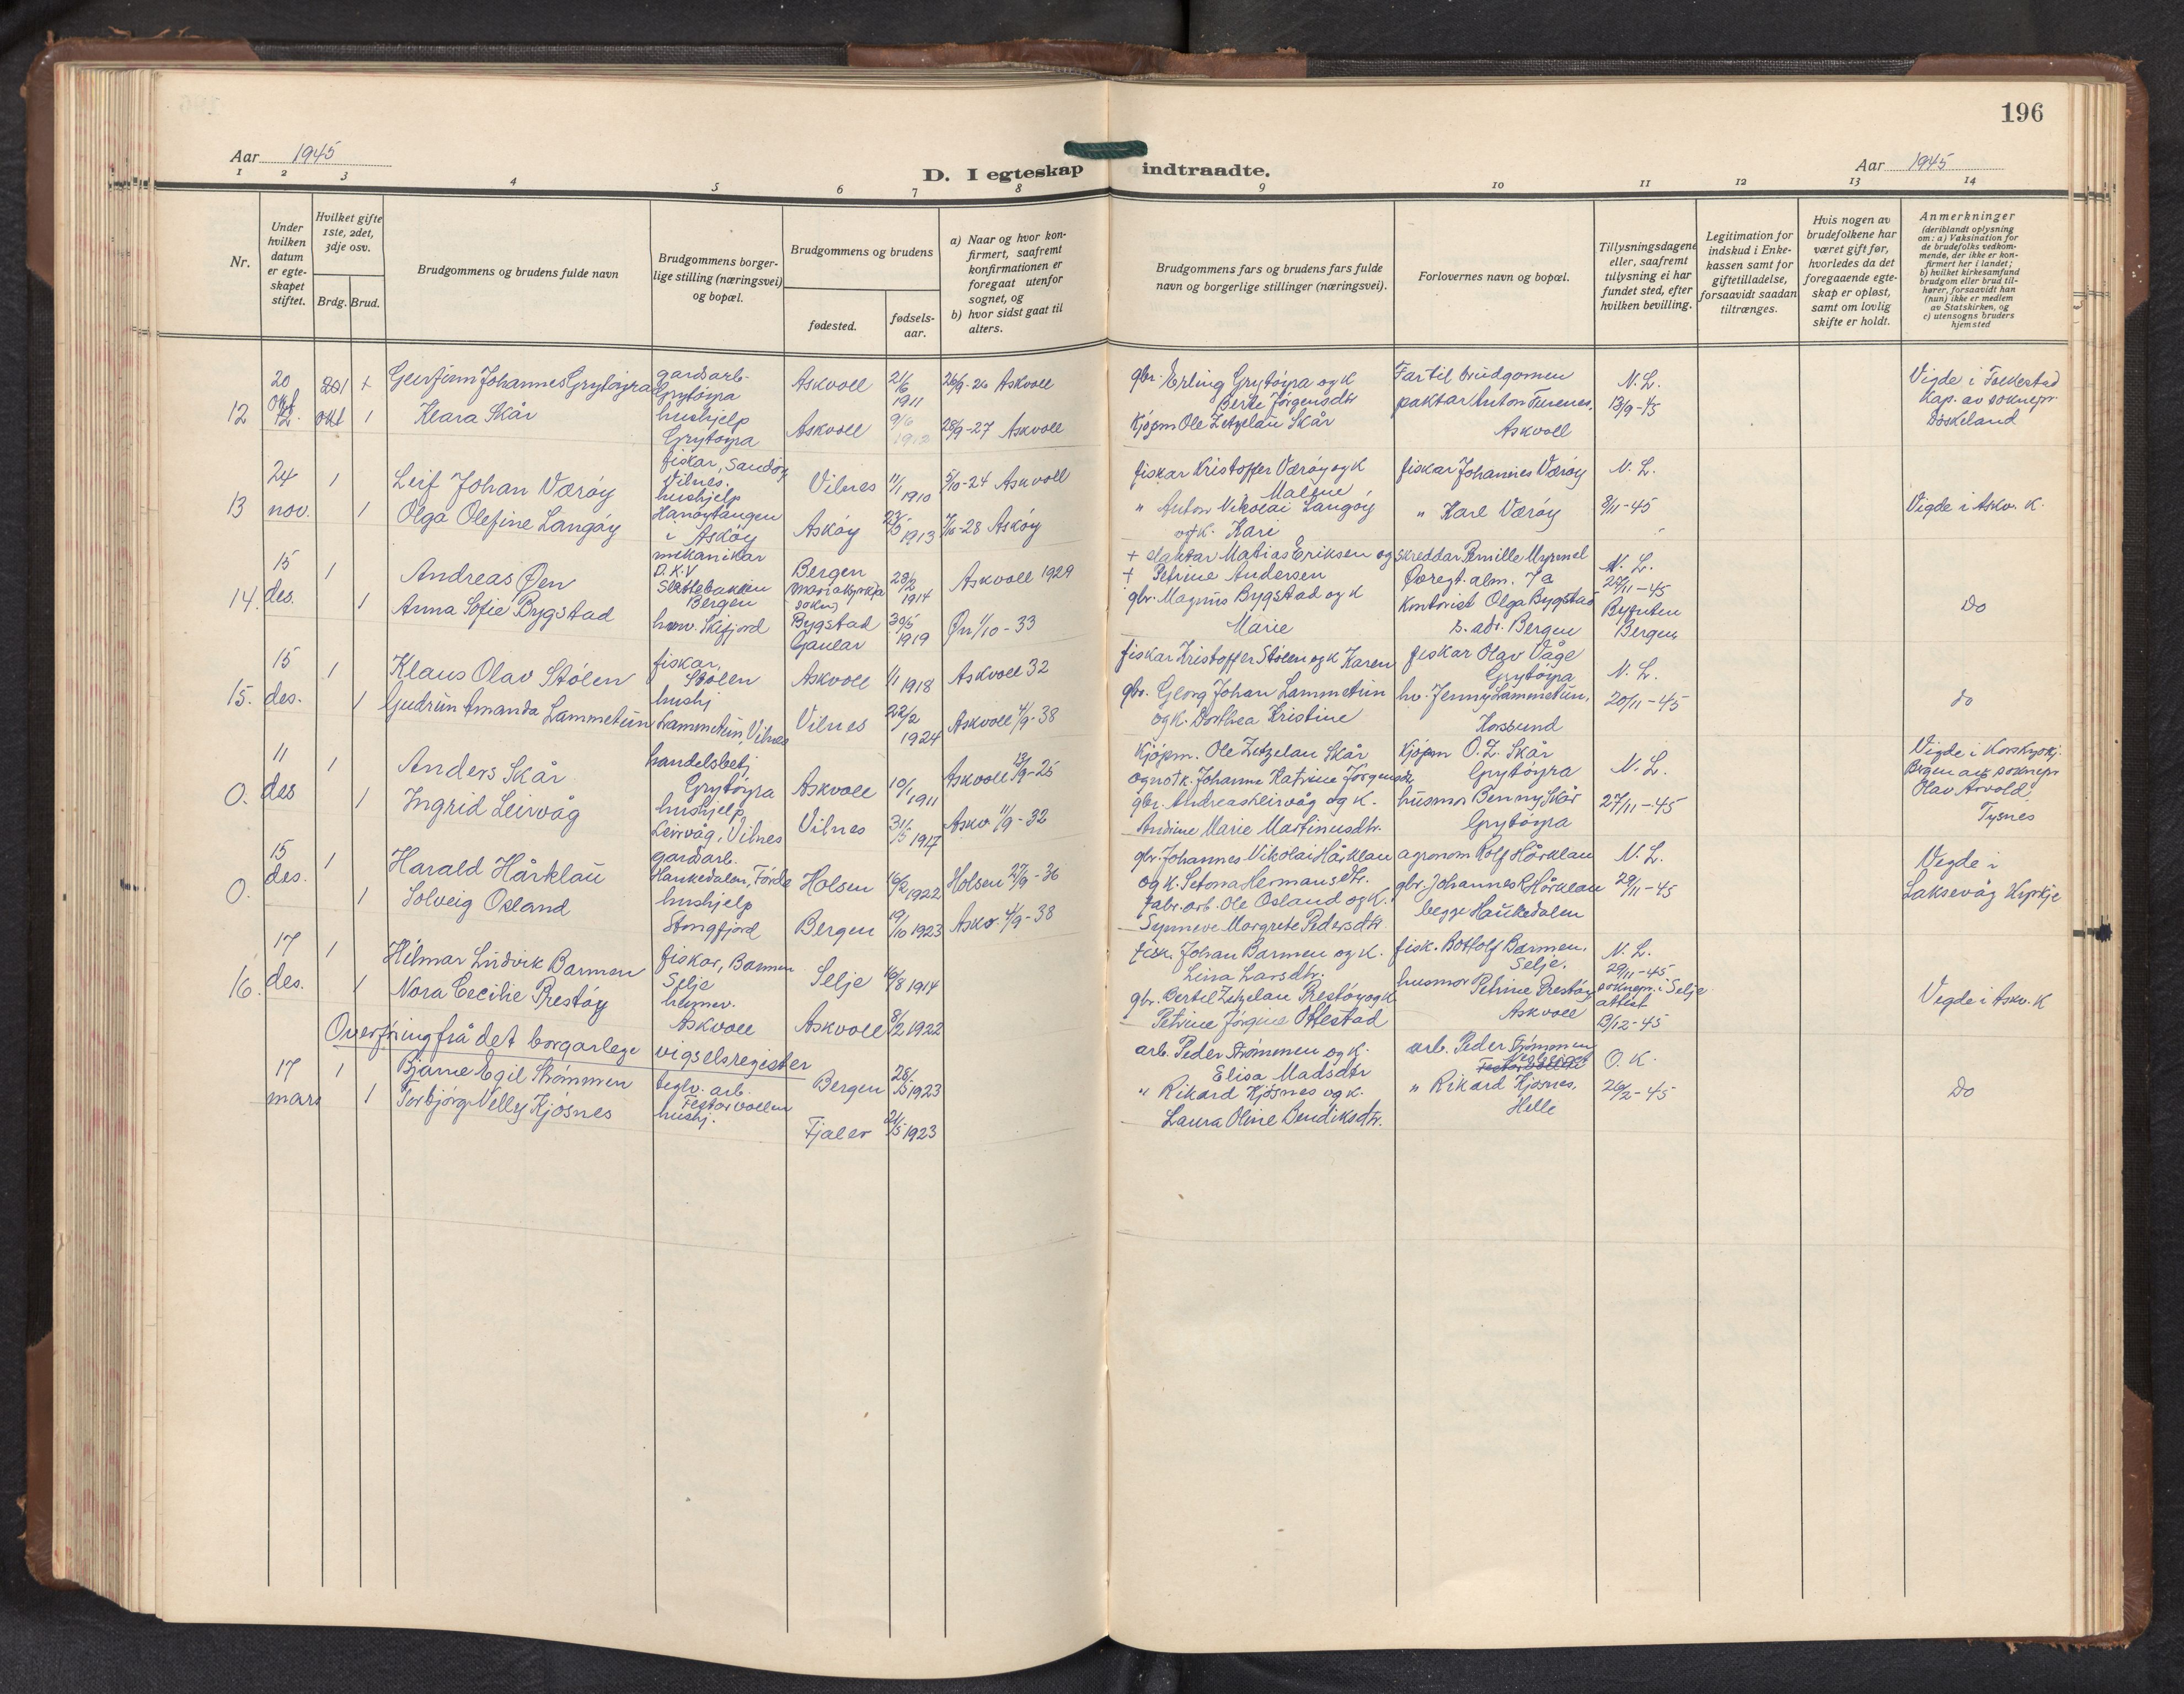 196
Aar 1945
D. I egteskap indtraadte.
Aar 1945
1 2 3 4 5 6 7 8 9 10 11 12 13 14
Nr.
Under hvilken datum er egte-skapet stiftet.
Hvilket gifte 1ste, 2det, 3dje osv.
Brdg. Brud.
Brudgommens og brudens fulde navn
Brudgommens borger-lige stilling (næringsvei) og bopæl.
Brudgommens og brudens
fødested.
fødsels-aar.
a) Naar og hvor kon-firmert, saafremt konfirmationen er foregaat utenfor sognet, og
b) hvor sidst gaat til alters.
Brudgommens fars og brudens fars fulde navn og borgerlige stillinger (næringsvei).
Forlovernes navn og bopæl.
Tillysningsdagene eller, saafremt tillysning ei har fundet sted, efter hvilken bevilling.
Legitimation for indskud i Enke-kassen samt for giftetilladelse, forsaavidt saadan tiltrænges.
Hvis nogen av brudefolkene har været gift før, hvorledes da det foregaaende egte-skap er opløst, samt om lovlig skifte er holdt.
Anmerkninger (deriblandt oplysning om: a) Vaksination for de brudefolks vedkom-mende, der ikke er kon-firmert her i landet; b) hvilket kirkesamfund brudgom eller brud til-hører, forsaavidt han (hun) ikke er medlem av Statskirken, og c) utensogns bruders hjemsted
12 20 okt
Geirfinn Johannes Grytøyra
gardsarb. Grytøyra
Askvoll 21/6 1911 26/9-26 Askvoll
gbr. Erling Grytøyra og k Berte Jørgensdtr
Far til brudgomen
N. L. 13/9-45
Vigde i Folkestad kap. av soknepr. Døskeland
1 Klara Skår
hushjelp Grytøyra
Askvoll 9/6 1912 28/9-27 Askvoll
Kjøpm Ole Zetzelau Skår
paktar Anton Furenes, Askvoll
13 24 nov. 1
Leif Johan Værøy
fiskar, Sandøy Vilnes.
Vilnes 11/1 1910 5/10-24 Askvoll
fiskar Kristoffer Værøy og k Maltine
fiskar Johannes Værøy
N. L. 9/11-45
Vigde i Askv. K.
1 Olga Olefine Langøy
hushjelp Hanøytangen i Askøy
Askøy 1913 7/10-28 Askøy
" Anton Nikolai Langøy og k. Kari
" Karl Værøy
14. 15 des. 1
Andreas Øen
mekanikar D.K.V Slettebakken Bergen
Bergen 1914 Askvoll 1929
+ slaktar Matias Eriksen og + Petrine Andersen
skreddar Pernille Myrmel
N. L. 27/11-45 Byfuten Bergen
Do
1 Anna Sofie Bygstad
Bygstad Gaular 30/5 1919 1/10-33
gbr. Magnus Bygstad og k Marie
kontorist Olga Bygstad s. adr. Bergen
15. 15 des. 1
Klaus Olav Stølen
fiskar, Stølen
Askvoll 1/1 1918 Askvoll 32
fiskar Kristoffer Stølen og k Karen
fiskar Olav Våge Grytøyra
N. L. 20/11-45
do
1 Gudrun Amanda Lammetun
hushj Lammetun, Vilnes
Vilnes 22/2 1924 Askvoll 4/9-38
gbr. Georg Johan Lammetun og k. Dorthea Kristine
hv. Jenny Lammetun, Korssund
0. 11 des 1
Anders Skår
handelsbetj Grytøyra
Askvoll 10/1 1911 Askvoll 13/9-25
Kjøpm. Ole Zetzelau Skår og k. Johanne Katrine Jørgensdtr
Kjøpm O. Z. Skår Grytøyra
N. L. 27/11-45
Vigde i Korskyrkj. Bergen av soknepr Olav Arvold, Tysnes
1 Ingrid Leirvåg
hushjelp Leirvåg, Vilnes
Vilnes 31/5 1917 Askv. 11/9-32
gbr. Andreas Leirvåg og k. Andrine Marie Martinusdtr.
husmor Benny Skår Grytøyra
0. 15 des. 1
Harald Hårklau
gardsarb. Haukedalen, Førde
Holsen 16/2 1922 Holsen 27/9-36
gbr. Johannes Nikolai Hårklau og k. Setona Hermansdtr.
agronom Rolf Hårklau
N. L. 29/11-45
Vigde i Laksevåg Kyrkje
1 Solveig Osland
hushjelp Stongfjord
Bergen 19/10 1923 Askv. 4/9-38
fabr. arb. Ole Osland og k. Synneve Margrete Pedersdtr
gbr. Johannes R Hårklau begge Haukedalen
16. 17 des. 1
Hilmar Ludvik Barmen
fiskar, Barmen Selje
Selje 16/8 1914
fisk. Johan Barmen og k. Lina Larsdtr.
fisk. Botholf Barmen, Selje.
N. L. 29/11-45 soknepr. i Selje attest 13/12-45
Vigde i Askv. K
1 Nora Cecilie Prestøy
husmor. Askvoll
Askvoll 8/2 1922
gbr. Bertel Zetzelau Prestøy og k Petrine Jørgine Offestad
husmor Petrine Prestøy Askvoll
Overføring frå det borgarlege vigselsregister
17 mars 1
Bjarne Egil Strømmen
teglv. arb.
Bergen 1923
arb. Peder Strømmen og k. Elisa Madsdtr
arb. Peder Strømmen
O. K. 26/2-45
Do
1 Torbjørg Nelly Kjøsnes
hushj.
Fjaler 21/5 1923
" Rikard Kjøsnes og k. Laura Oline Bendiksdtr.
" Rikard Kjøsnes, Helle